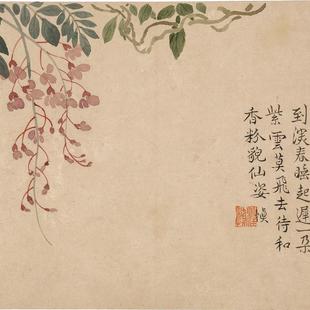 到溪春曉起遲一朵
紫雲莫飛去待和
香粉貌仙姿